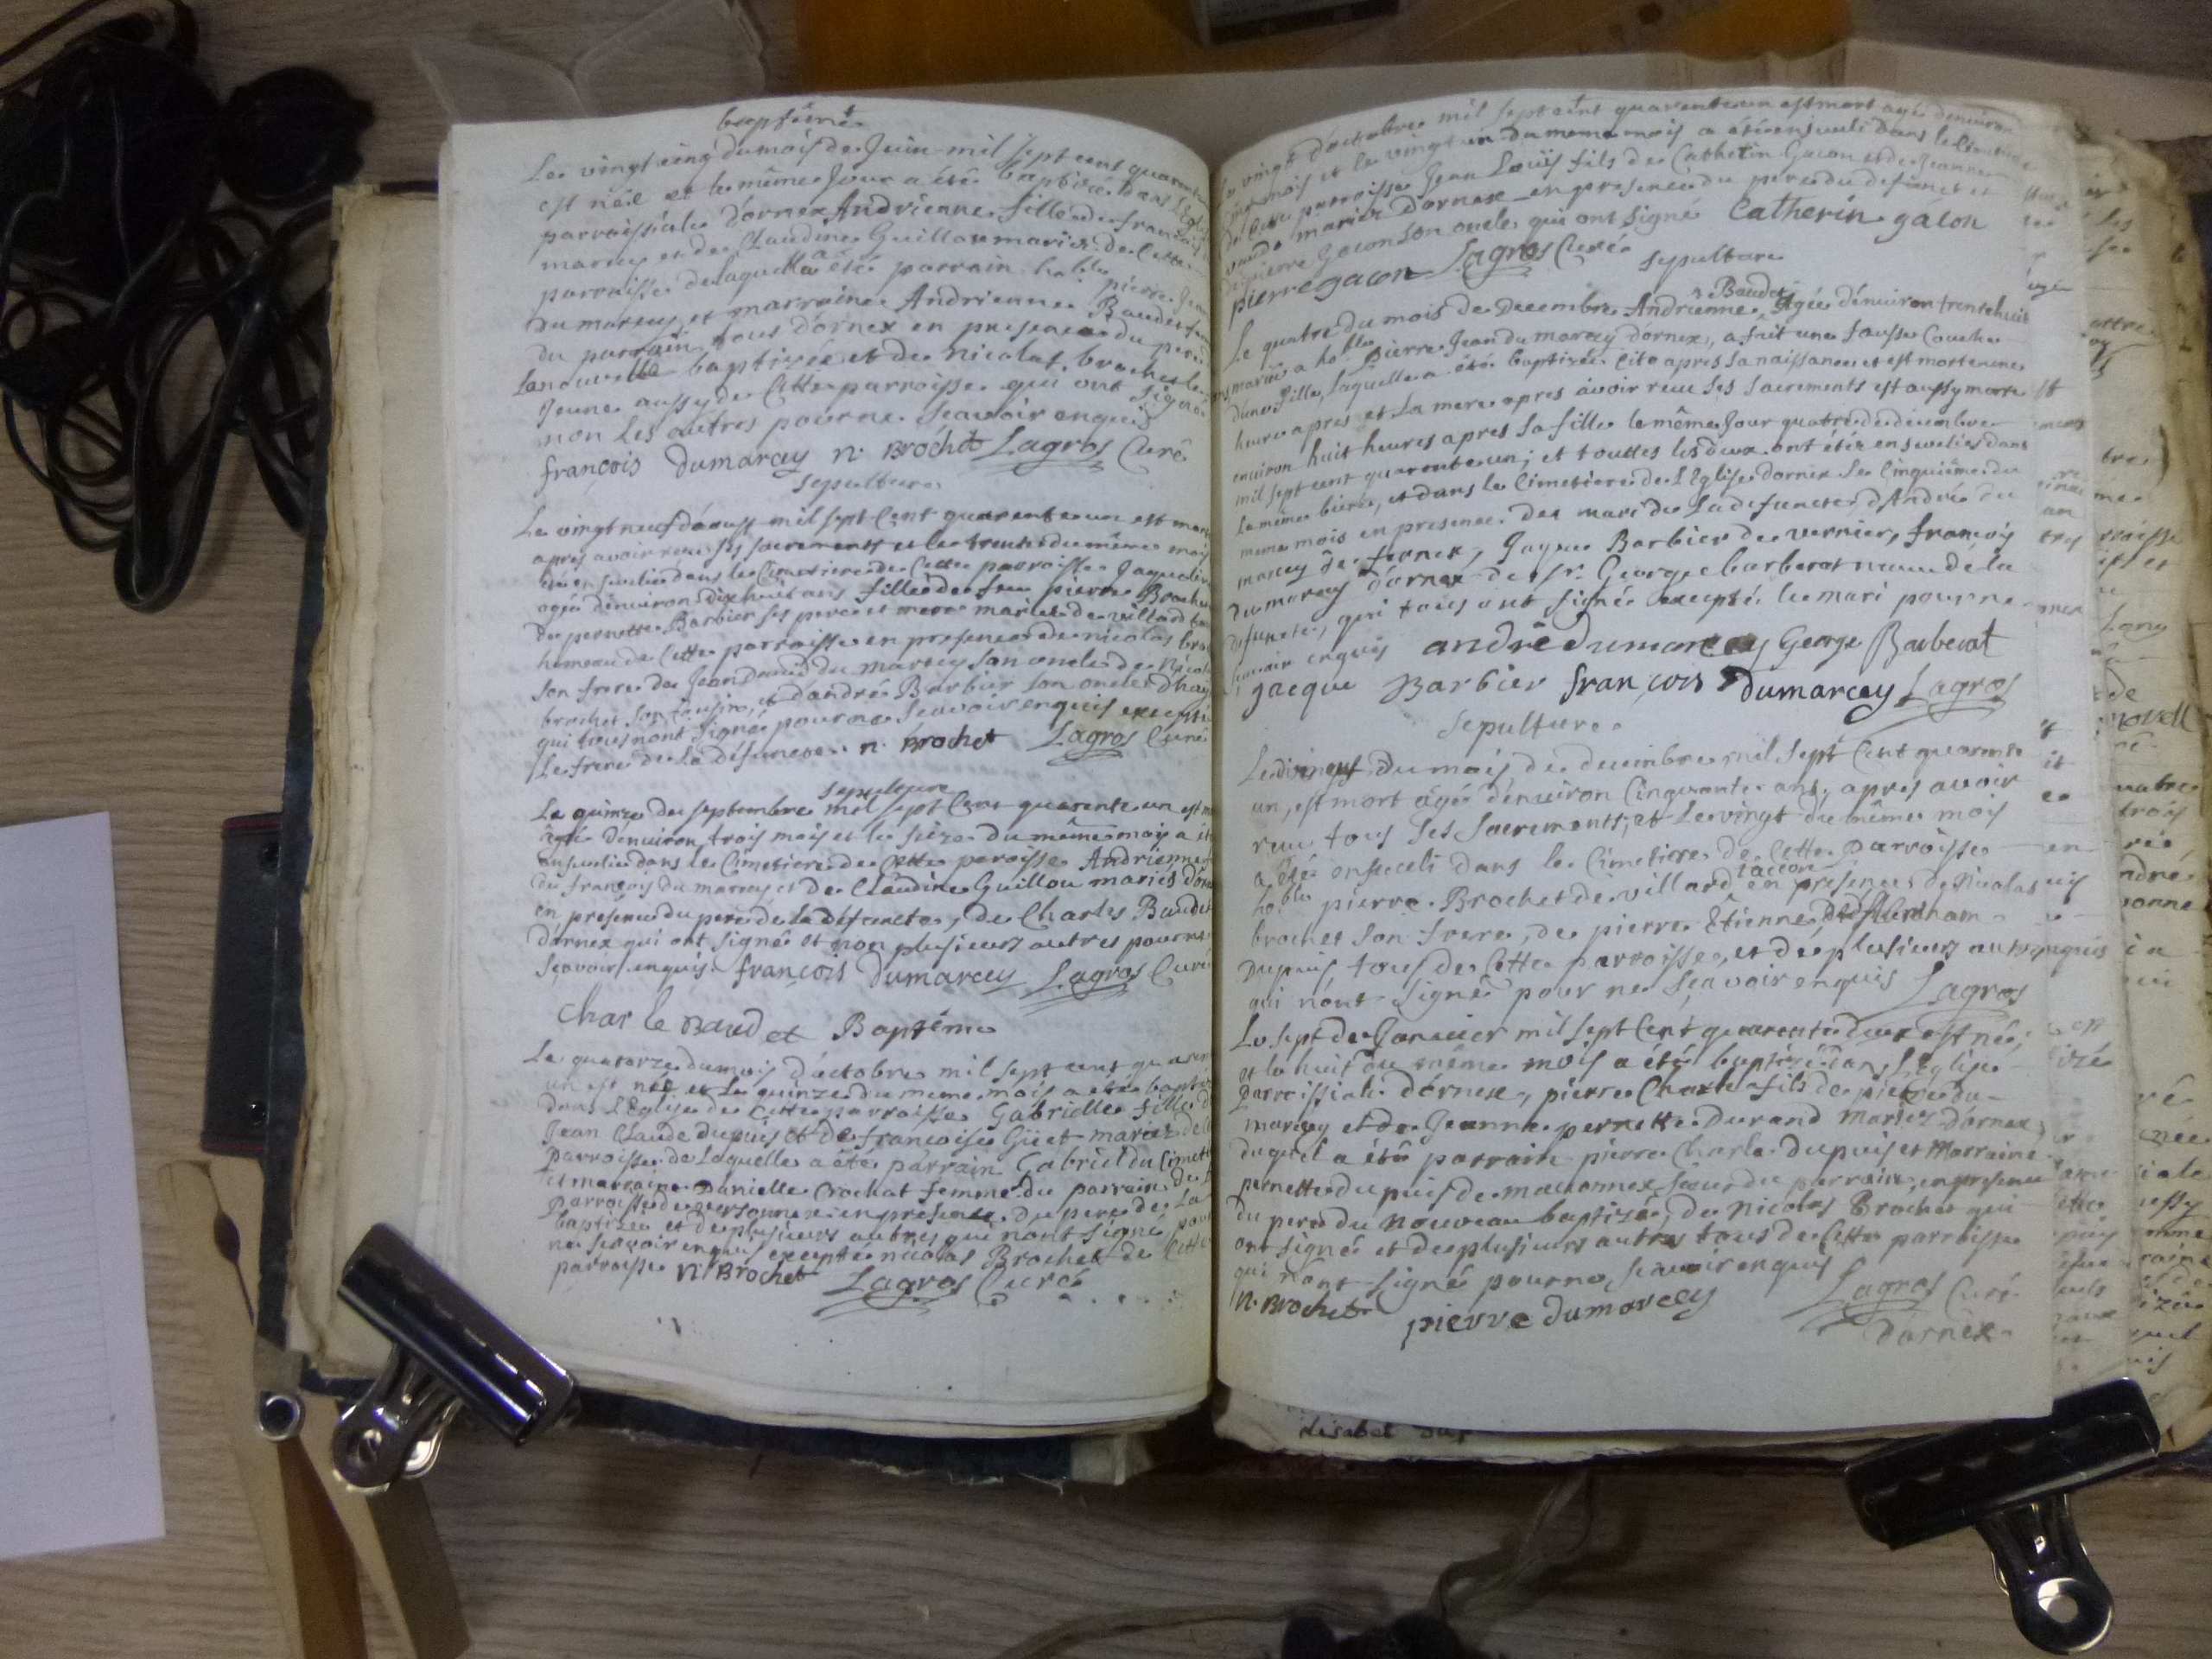 baptême
Le vingt cinq du mois de Juin mil sept cent quarante
est née et le même Jour a été baptisée dans l'Eglise
parroissiale d'ornex Andrienne fille de francois
marcey et de Claudine Guillou mariés de Cette
parroisse de laquelle a été parrain hoble pierre Jean
Dumarcey et marraine Andrienne Baudet femme
du parrain tous d'ornex en presence du pere de
la nouvelle baptizée et de nicolas brochet le
Jeune aussy de Cette parroisse qui ont signé
non les autres pour ne scavoir enquis
françois dumarcey n. Brochet Lagros Curé
sepulture
Le vingt neuf d'aoust mil sept Cent quarente un est morte
apres avoir receu ses sacrements et le trente du même mois
ensevelie dans le Cimetiere de Cette parroisse Jaqueline
agée d'environ dix huit ans fille de feu pierre Brochet
de pernette Barbier ses pere et mere mariés de villard
hameau de Cette parroisse en presence de nicolas brochet
son frere de Jean David du marcey son oncle de Nicolas
brochet son Cousin, et d'andré Barbier son oncle
qui tous n'ont signé pour ne scavoir enquis excepté
Le frere de la défuncte. n. Brochet Lagros Curé
sepulture
Le quinze de septembre mil sept Cent quarente un est
agée d'environ trois mois et le seize du même mois a été
ensevelie dans le Cimetiere de Cette paroisse Andrienne
du françois du marcey et de Claudine Guillou mariés d'ornex
en presence du pere de la défuncte, de Charles Baudet
d'ornex qui ont signé et non plusieurs autres pour ne
scavoir enquis. françois Dumarcey Lagros Curé
Charle Baudet Baptême
Le quatorze du mois d'octobre mil sept cent quarente
un est née et le quinze du meme mois a été baptisée
dans l'Eglise de Cette parroisse Gabrielle fille de
Jean Claude dupuis et de francoise Guet mariez de
parroisse de laquelle a été parrain Gabriel du Cimetiere
et marraine Danielle Crochat femme du parrain de
parroisse de versonnex en presence du pere de la
baptizée et de plusieurs autres qui n'ont signé pour
ne scavoir enquis excepté nicolas Brochet de Cette
parroisse N. Brochet Lagros Curé
Le vingt d'octobre mil sept cent quarente un est mort agé d'environ
mois et le vingt un du meme mois a été enseveli dans le Cimetiere
de Cette parroisse Jean Louïs fils de Catherin Gacon et de Jeanne
mariez d'ornex en presence du pere du defunct et
de pierre Gacon son oncle qui ont signé Catherin gacon
pierre gacon Lagros Curé
sepulture
Le quatre du mois de Decembre Andrienne Baudet, Agée d'environ trente huit
ans mariée a hoble Pierre Jean du marcey d'ornex, a fait une fausse Couche
d'une fille, laquelle a été baptizée Cito apres sa naissance et est morte une
heure apres et La mere apres avoir receu ses sacrements est aussy morte
environ huit heures apres sa fille le même Jour quatre de decembre
mil sept cent quarente un; et touttes les deux ont étés ensevelies dans
la même biere, et dans le Cimetiere de l'Eglise d'ornex le Cinquième du
meme mois en presence du mari de la defuncte, d'André du
marcey de fernex, Jaque Barbier de vernier, françois
du marcey d'ornex de Sr. George barberat neveu de la
defuncte, qui tous ont signé excepté le mari pour ne
scavoir enquis andré dumarcey George Barberat
Jacque Barbier françois Dumarcey Lagros
sepulture
Le dixneuf du mois de decembre mil sept Cent quarente
un, est mort agé d'environ Cinquante ans, apres avoir
receu tous ses sacrements, et le vingt du même mois
a été enseveli dans le Cimetiere de Cette parroisse
hoble pierre Brochet de villard en presence de Nicolas
brochet son frere, de pierre Étienne
Dupuis, tous de Cette parroisse, et de plusieurs autres
qui n'ont signé pour ne sçavoir enquis Lagros
Le sept de Janvier mil sept Cent quarente deux est né,
et le huit du même mois a été baptizé dans l'Eglise
parroissiale d'ornex, pierre Charle fils de pierre du
marcey et de Jeanne pernette Durand Mariez d'ornex,
duquel a été parrain pierre Charle dupuis et Marraine
pernette dupuis de maconnex sœur du parrain, en presence
du pere du Nouveau baptizé, de Nicolas Brochet qui
ont signé et de plusieurs autres tous de Cette parroisse
qui n'ont signé pour ne scavoir enquis
N. Brochet pierre dumarcey Lagros Curé
d'ornex